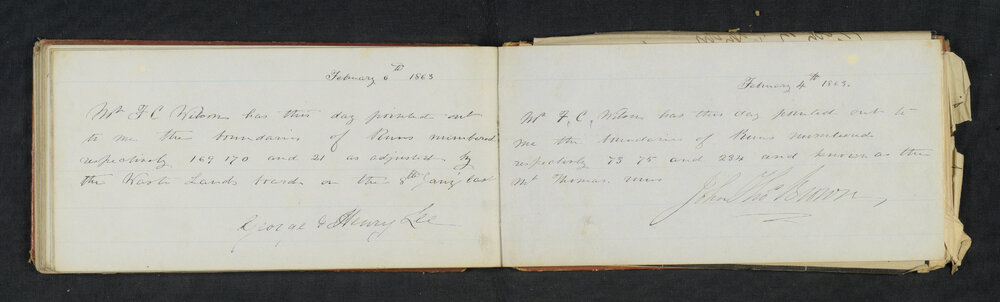 February 6th 1863
Mr F C Wilson has this day pointed out
to me the boundaries of Runs numbered
respectively 169 170 and 21 as adjusted by
the Waste Lands board on the 8th Jany last
George & Henry Lee
February 4th 1863.
Mr F. C. Wilson has this day pointed out to
me the boundaries of Runs numbered
respectively 73 75 and 234 and known as the
Mt Thomas runs
John Thos Brown,